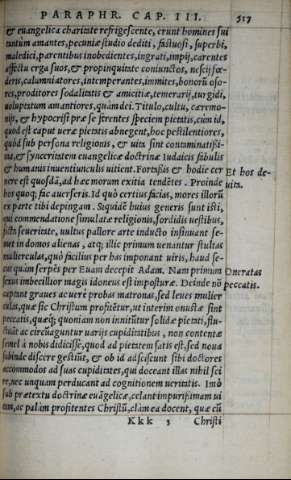 PARAPHR. CAP. III. 517
& euangelica charitate refrigescente, erunt homines sui
tantum amantes, pecuniæ studio dediti, fastuosi, superbi,
maledici, parentibus inobedientes, ingrati, impij, carentes
affectu erga suos, & propinquitate coniunctos, nescij fœ-
deris, calumniatores, intemperantes, immites, bonorū oso-
res, proditores sodalitatis & amicitiæ, temerarij, turgidi,
uoluptatum amantiores, quàm dei. Titulo, cultu, cæremo-
nijs, & hypocrisi præ se ferentes speciem pietatis, cùm id,
quod est caput ueræ pietatis abnegent, hoc pestilentiores,
quòd sub persona religionis, & uitæ sint contaminatissi-
mæ, & synceritatem euangelicæ doctrinæ Iudaicis fabulis
& humanis inuentiunculis uitient. Fortassis & hodie cer
nere est quosdā, ad hæc morum exitia tendētes. Proinde
hos quoq; fac auerseris. Id quò certius facias, mores illorū
ex parte tibi depingam. Siquidē huius generis sunt isti,
qui commendatione simulatæ religionis, sordidis uestibus,
ficta seueritate, uultus pallore arte inducto insinuant se-
met in domos alienas, atq; illic primum uenantur stultas
mulierculas, quò facilius per has imponant uiris, haud se-
cus quàm serpēs per Euam decepit Adam. Nam primum
sexus imbecillior magis idoneus est imposturæ. Deinde nō
captant graues ac ueræ probas matronas, sed leues mulier
culas, quæ sic Christum profitētur, ut interim onustæ sint
peccatis, quæq; quoniam non innitūtur solidæ pietati, flu-
ctuāt ac circūaguntur uarijs cupiditatibus, non contentæ
semel à nobis didicisse, quod ad pietatem satis est, sed noua
subinde discere gestiūt, & ob id adsciscunt sibi doctores
accommodos ad suas cupiditates, qui doceant illas nihil sci
re, nec unquam perducant ad cognitionem ueritatis. Imò
sub prætextu doctrinæ euāgelicæ, celant impurissimam ui
tam, ac palàm profitentes Christū, clàm ea docent, quæ cū
Kkk 3 Christi
Et hos de-
uita.
Oneratas
peccatis.